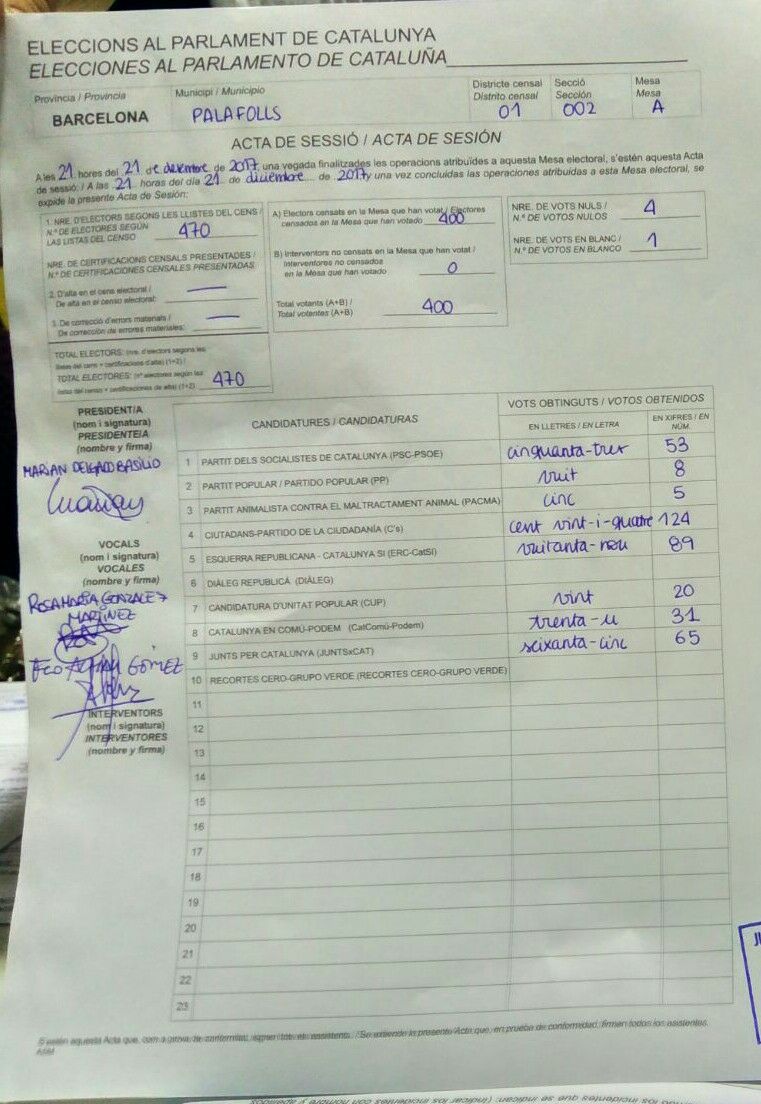 ELECCIONS AL PARLAMENT DE CATALUNYA
ELECCIONES AL PARLAMENTO DE CATALUÑA
Provincia / Provincia
BARCELONA
Municipi / Municipio
PALAFOLLS
Districte censal
Distrito censal
01
Secció
Sección
002
Mesa
Mesa
A
ACTA DE SESSIÓ / ACTA DE SESIÓN
A les 21 hores del 21 de desembre de 2017, una vegada finalitzades les operacions atribuïdes a aquesta Mesa electoral, s'estén aquesta Acta
de sessió: / A las 21 horas del día 21 de diciembre de 2017, y una vez concluidas las operaciones atribuidas a esta Mesa electoral, se
expide la presente Acta de Sesión:
1. NRE. D'ELECTORS SEGONS LES LLISTES DEL CENS /
N.º DE ELECTORES SEGÚN
LAS LISTAS DEL CENSO 470
NRE. DE CERTIFICACIONS CENSALS PRESENTADES /
N.º DE CERTIFICACIONES CENSALES PRESENTADAS
2. D'alta en el cens electoral /
De alta en el censo electoral: —
3. De correcció d'errors materials /
De corrección de errores materiales: —
TOTAL ELECTORS: (nre. d'electors segons les
llistes del cens + certificacions d'alta) (1+2) /
TOTAL ELECTORES: (nº electores según las
listas del censo + certificaciones de alta) (1+2) 470
A) Electors censats en la Mesa que han votat / Electores
censados en la Mesa que han votado 400
B) Interventors no censats en la Mesa que han votat /
Interventores no censados
en la Mesa que han votado 0
Total votants (A+B) /
Total votantes (A+B) 400
NRE. DE VOTS NULS /
N.º DE VOTOS NULOS 4
NRE. DE VOTS EN BLANC /
N.º DE VOTOS EN BLANCO 1
PRESIDENT/A
(nom i signatura)
PRESIDENTE/A
(nombre y firma)
MARIAN DELGADO BASILIO
VOCALS
(nom i signatura)
VOCALES
(nombre y firma)
ROSA MARIA GONZALEZ
MARTINEZ
GOMEZ
INTERVENTORS
(nom i signatura)
INTERVENTORES
(nombre y firma)
CANDIDATURES / CANDIDATURAS
VOTS OBTINGUTS / VOTOS OBTENIDOS
EN LLETRES / EN LETRA
EN XIFRES / EN
NÚM.
1 PARTIT DELS SOCIALISTES DE CATALUNYA (PSC-PSOE) cinquanta-tres 53
2 PARTIT POPULAR / PARTIDO POPULAR (PP) vuit 8
3 PARTIT ANIMALISTA CONTRA EL MALTRACTAMENT ANIMAL (PACMA) cinc 5
4 CIUTADANS-PARTIDO DE LA CIUDADANÍA (C's) cent vint-i-quatre 124
5 ESQUERRA REPUBLICANA - CATALUNYA SI (ERC-CatSI) vuitanta-nou 89
6 DIÀLEG REPUBLICÀ (DIÀLEG)
7 CANDIDATURA D'UNITAT POPULAR (CUP) vint 20
8 CATALUNYA EN COMÚ-PODEM (CatComú-Podem) trenta-u 31
9 JUNTS PER CATALUNYA (JUNTSxCAT) seixanta-cinc 65
10 RECORTES CERO-GRUPO VERDE (RECORTES CERO-GRUPO VERDE)
11
12
13
14
15
16
17
18
19
20
21
22
23
S'estén aquesta Acta que, com a prova de conformitat, signen tots els assistents. / Se extiende la presente Acta que, en prueba de conformidad, firman todos los asistentes.